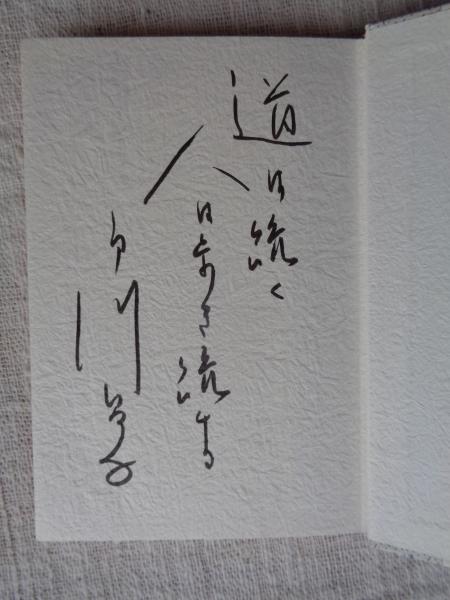 道は続く
人は歩き続ける
川